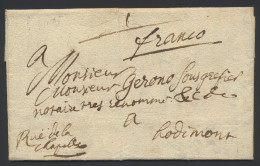 franco
A
Monsieur
Monsieur Gerono
notaire tres renommé &c &c
a
Rodimont
Rue de la
Chapelle